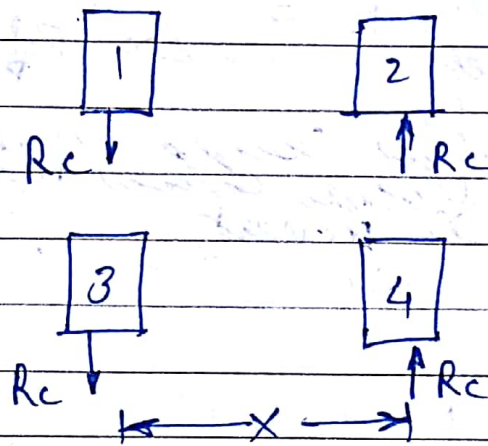 1 2
Rc Rc
3 4
Rc Rc
X